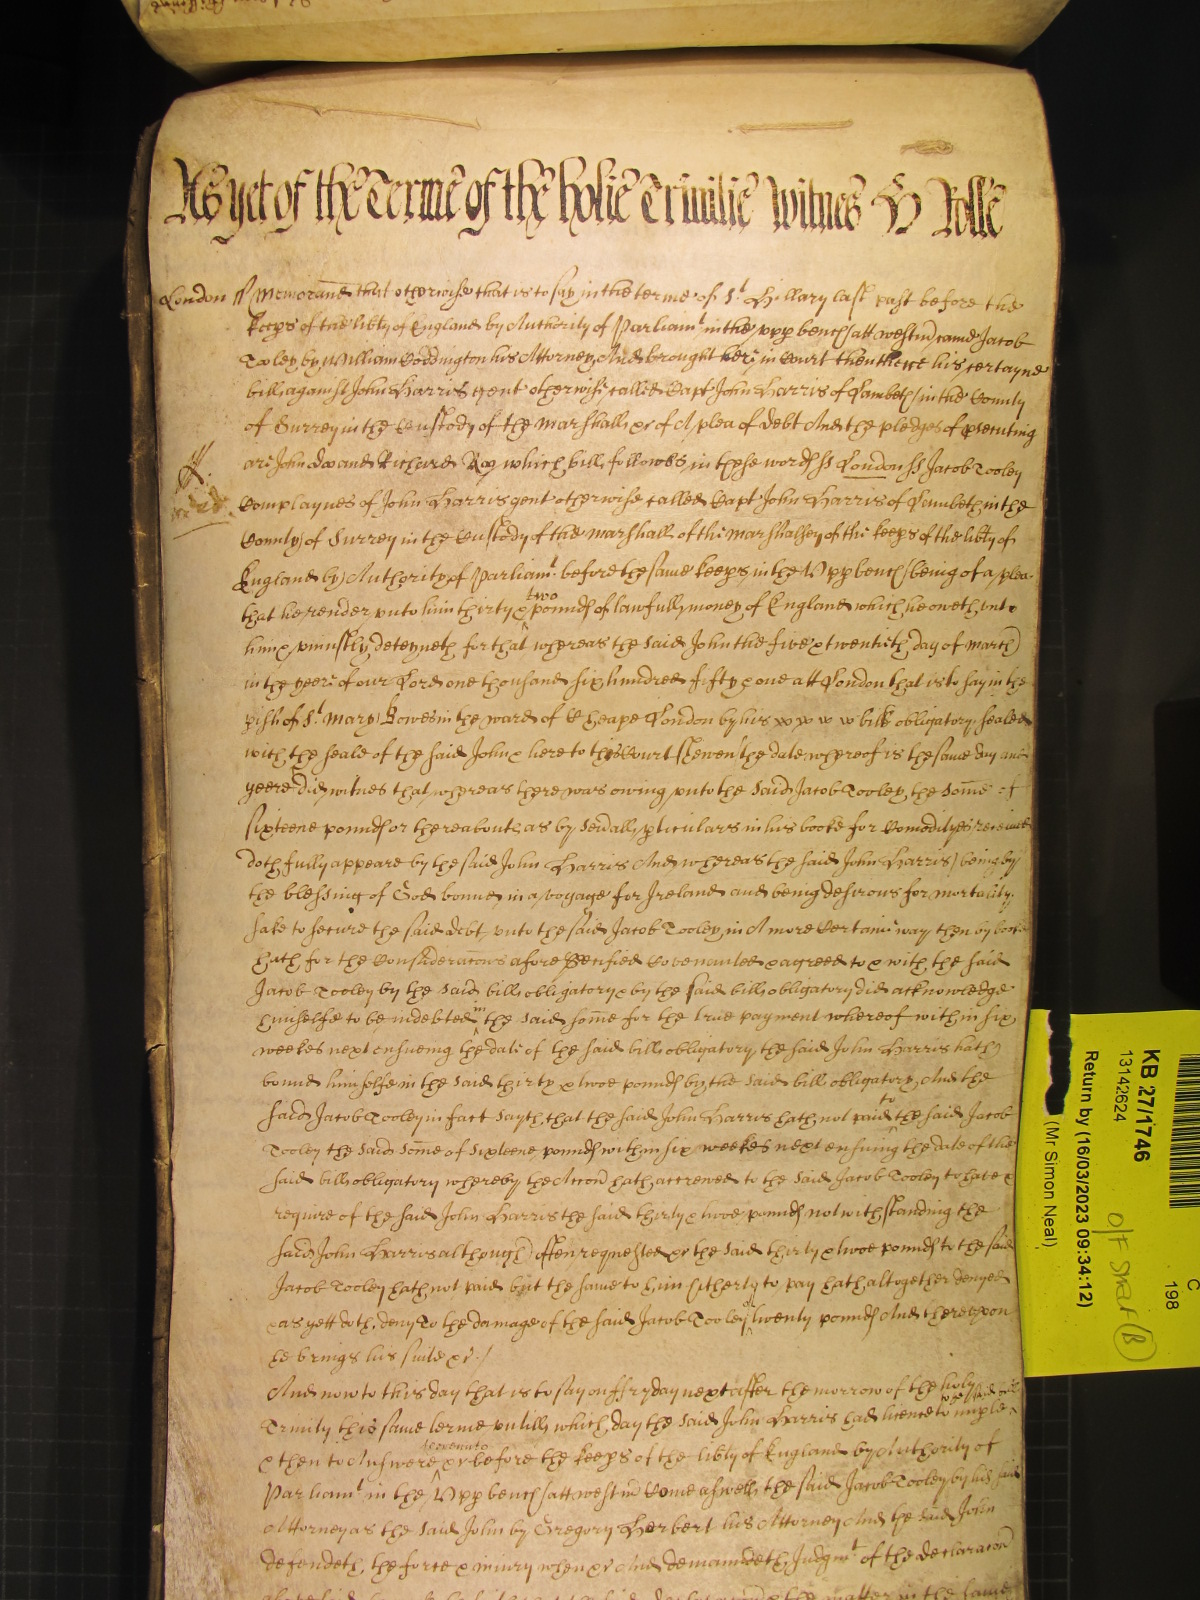 As yet of the Terme of the holie Trinitie Witnes H Rolle
London ss Memorand that otherwise that is to say in the terme of St Hillary last past before the
keeps of the libty of England by Authority of Parliamt in the upp bench att westm came Jacob
Tooley by William Coddington his Attorney And brought here in Court then there his certayne
bill against John Harris gent otherwise called Capt John Harris of Lambeth in the County
of Surrey in the Custody of the Marshall xc of A plea of debt And the pledges of psecuting
are John doo and Richard Roo which bill followes in these words ss London ss Jacob Tooley
Complaynes of John Harris gent otherwise called Capt John Harris of Lambeth in the
County of Surrey in the Custody of the marshall of the Marshalsey of the keeps of the libty of
England by Authority of Parliamt before the same keeps in the Upp bench being of a plea
that he render unto him thirty & two pounds of lawfull money of England which he oweth unto
him & uniustly deteyneth for that whereas the said John the five & twentieth day of March
in the yeere of our Lord one thousand six hundred fifty & one att London that is to say in the
pish of St Mary Bowes in the ward of Cheape London by his bill obligatory sealed
with the seale of the said John & here to the Court shewen the date whereof is the same day and
yeere did witnes that whereas there was owing unto the said Jacob Tooley the some of
sixteene pounds or thereabouts as by sevall pticulars in his booke for Comodityes received
doth fully appeare by the said John Harris And whereas the said John Harris being by
the blessing of God bound in a voyage for Ireland and being desirous for mortality
sake to secure the said debt unto the said Jacob Tooley in A more Certaine way then by booke
hath for the Consideracons afore specified Covenanted & agreed to & with the said
Jacob Tooley by the said bill obligatory & by the said bill obligatory did acknowledge
himselfe to be indebted in the said some for the true payment whereof within six
weekes next ensueing the date of the said bill obligatory the said John Harris hath
bound himselfe in the said thirty & twoe pounds by the said bill obligatory And the
said Jacob Tooley in fact sayth that the said John Harris hath not paid to the said Jacob
Tooley the said some of Sixteene pounds within six weekes next ensuing the date of the
said bill obligatory whereby the Accon hath accrewed to the said Jacob Tooley to have &
require of the said John Harris the said thirty & twoe pounds notwithstanding the
said John Harris although often requested xc the said thirty & twoe pounds to the said
Jacob Tooley hath not paid but the same to him hitherto to pay hath altogether denyed
& as yett doth deny To the damage of the said Jacob Tooley of twenty pounds And thereupon
he brings his suite xc
And now to this day that is to say on ffryday next after the morrow of the holy
Trinity this same terme untill which day the said John Harris had licence to the said bill to imple
& then to Answere xc before the keeps of the libty of England by Authority of
Parliamt in the Upp bench att westm Come aswell the said Jacob Tooley by his said
Attorney as the said John by Gregory Herbert his Attorney And the said John
defendeth the force & iniury when xc And demandeth Judgmt of the declaracon
KB 27/1746
13142624
Return by (16/03/2023 09:34:12)
(Mr Simon Neal)
C
198
O/F SHELF B